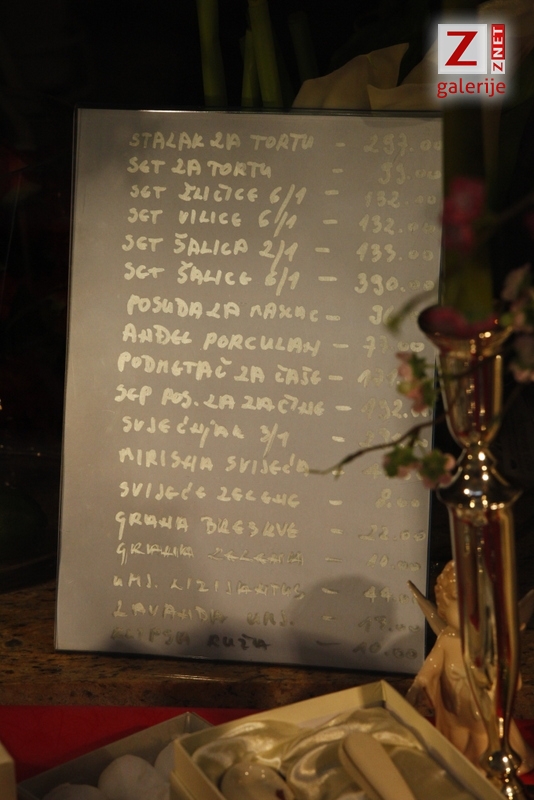 Z
ZNET
galerije
STALAK ZA TORTU - 297.00
SET ZA TORTU - 99.00
SET ŽLIČICE 6/1 - 132.00
SET VILICE 6/1 - 132.00
SET ŠALICA 2/1 - 133.00
SET ŠALICE 6/1 - 390.00
POSUDA ZA -
ANĐEL PORCULAN -
PODMETAČ ZA ČAŠE -
SEP POS. ZA ZAČINE - 192.00
SVJEĆNJAK 3/1 -
MIRISNA SVIJEĆA
SVIJEĆE ZELENE - 8.00
GRANA BRESKVE - 22.00
GRANA ZELENA - 10.00
KMS. LIZIJANTUS - 44.00
LAVANDA KMS. - 18.00
RUŽA - 10.00